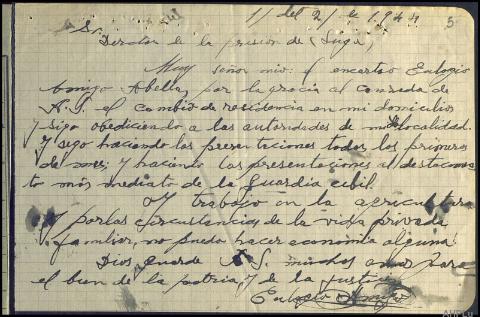 11 del 2/ e 1.944 5
Sr.
Director de la presion de Lugo,
Muy señor mio: el encartao Eulogio
Amigo Abella, por la gracia al consada de
A. S. el cambio de residencia en mi domicilios
y sigo obediciendo a las autoridades de mi localidad.
y sigo haciendo las presentaciones todos los primeros
de mes; y haciendo las presentaciones al destacamen
to más imediato de la Guardia cibil.
oy trabajo en la agricultura
y por las circustancias de la vida privada
familiar, no puedo hacer economía alguna.
Dios guarde S. muchos anos para
el bien de la patria, y de la justicia
Eulogio Amigo
AHPLu